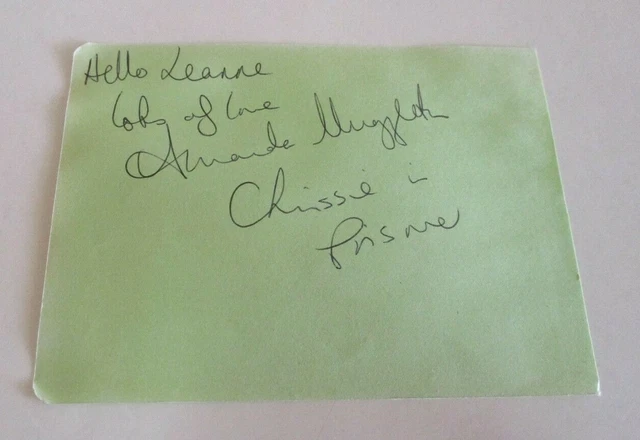 Hello Leanne
Lots of love
Amanda Muggleton
Chrissie in
Prisoner